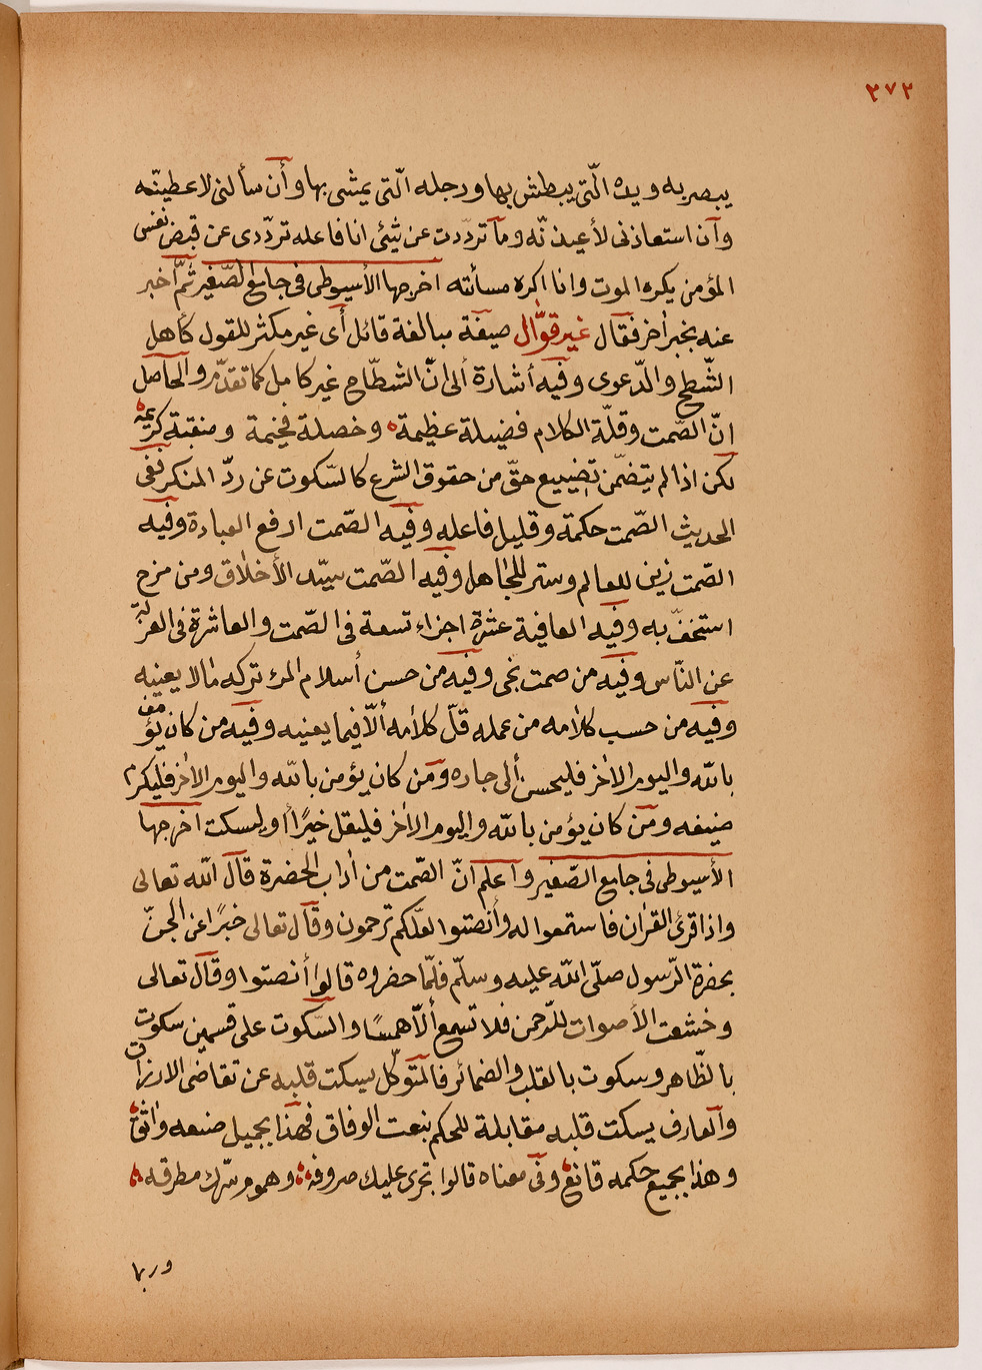 ٣٧٢
يبصر به ويده الّتى يبطش بها ورجله الّتى يمشى بها وأن سألنى لاعطينّه
وآن استعاذنى لأعيذنّه ومآ تردّدت عن شئى انا فاعله تردّدى عن قبض نفس
المؤمن يكره الموت وانا اكره مسأته اخرجها الأسيوطى فى جامع الصّغير ثمّ أخبر
عنه بخبر اٰخر فقال غير قوّال صيغة مبالغة قائل أى غير مكثر للقول كأهل
الشّطح والدّعوى وفيه أشارة ألى انّ الشطّاح غير كامل كما تقدّم والحاصل
انّ الصّمت وقلّة الكلام فضيلة عظيمة وخصلة فخيمة ومنقبة كريمة
لكن اذا لم يتضمّن تضييع حقّ من حقوق الشرع كالسّكوت عن ردّ المنكر ففى
الحديث الصّمت حكمة وقليل فاعله وفيه الصّمت ارفع العبادة وفيه
الصّمت زين للعالم وستر للجاهل وفيه الصّمت سيّد الأخلاق ومن مزح
استخفّ به وفيه العافية عشرة اجزاء تسعة فى الصّمت والعاشرة فى العزلة
عن النّاس وفيه من صمت نجى وفيه من حسن أسلام المرء تركه مالا يعنيه
وفيه من حسب كلامه من عمله قلّ كلامه ألّا فيما يعنيه وفيه من كان يؤمن
بالله واليوم الاٰخر فليحسن ألى جاره ومن كان يؤمن بالله واليوم الاٰخر فليكرم
ضيفه ومن كان يؤمن بالله واليوم الاٰخر فليقل خيرًا أو ليسكت اخرجها
الأسيوطى فى جامع الصّغير وآعلم انّ الصّمت من اٰداب الحضرة قآل الله تعالى
واذا قرئ القراٰن فاستمعوا له وأنصتوا لعلّكم ترحمون وقآل تعالى خبرًا عن الجنّ
بحضرة الرّسول صلّى الله عليه وسلّم فلمّا حضروه قالوا أنصتوا وقآل تعالى
وخشعت الأصوات للرّحمن فلا تسمع ألّا همسًا والسّكوت على قسمين سكوت
بالظّاهر وسكوت بالقلب والضمائر فالمتوكّل يسكت قلبه عن تقاضى الارزاق
وآلعارف يسكت قلبه مقابلة للحكم بنعت الوفاق فهذا بجميل صنعه واثق
وهذا بجميع حكمه قانع وفى معناه قالوا تجرى عليك صروفه وهموم سرّك مطرقه
وربما